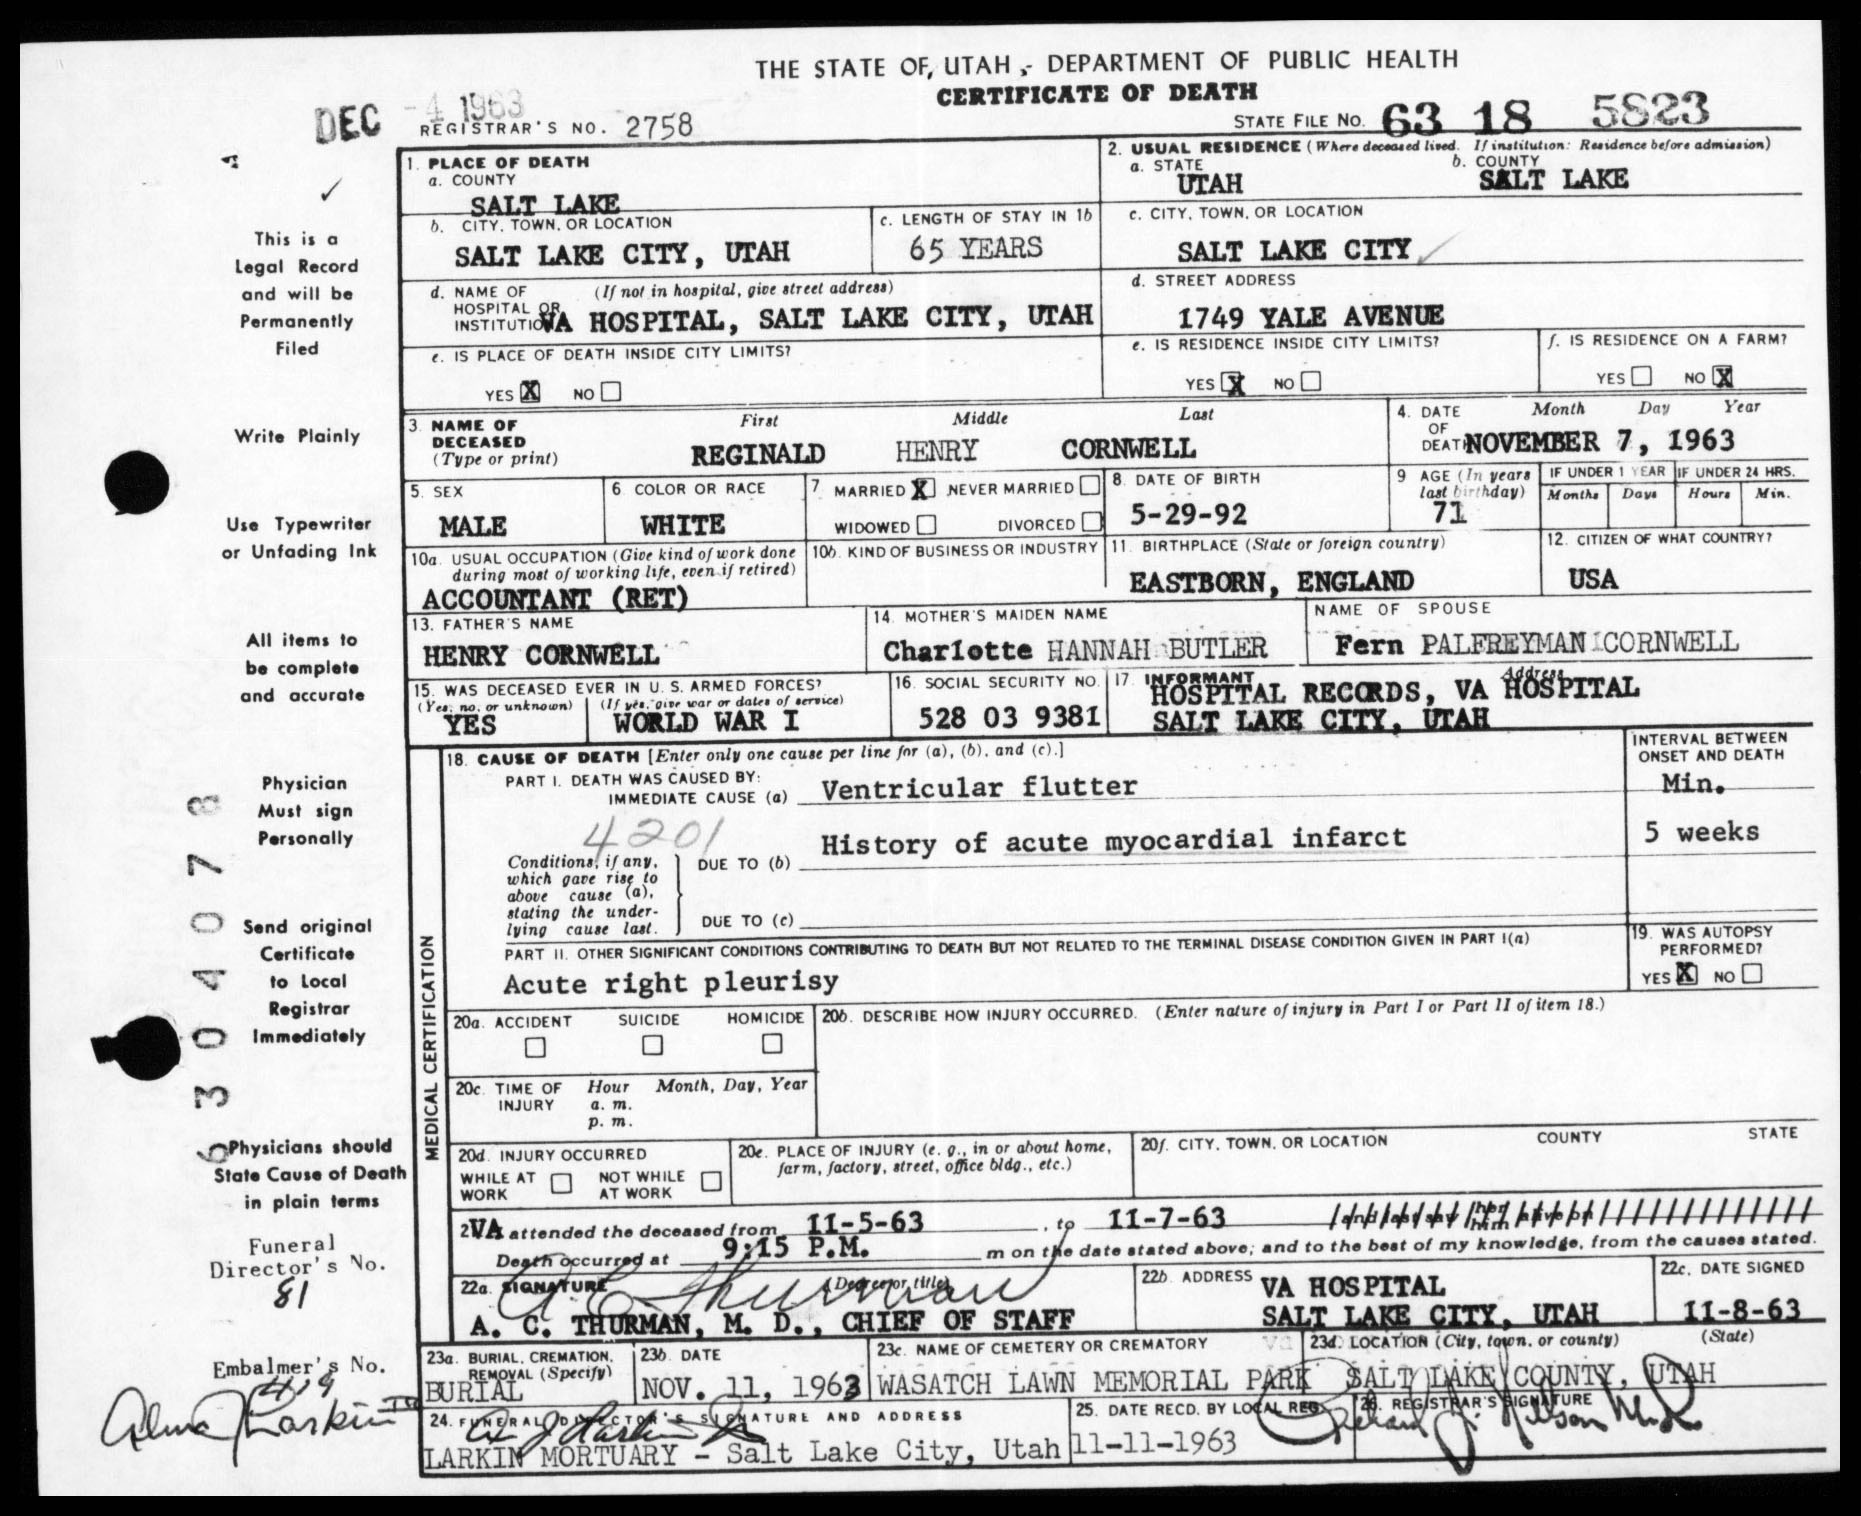 THE STATE OF UTAH - DEPARTMENT OF PUBLIC HEALTH
CERTIFICATE OF DEATH
DEC -4 1963
REGISTRAR'S NO. 2758
STATE FILE NO. 63 18 5823
1. PLACE OF DEATH
a. COUNTY
SALT LAKE
2. USUAL RESIDENCE (Where deceased lived. If institution: Residence before admission)
a. STATE
UTAH
b. COUNTY
SALT LAKE
b. CITY, TOWN, OR LOCATION
SALT LAKE CITY, UTAH
c. LENGTH OF STAY IN 1b
65 YEARS
c. CITY, TOWN, OR LOCATION
SALT LAKE CITY
d. NAME OF HOSPITAL OR INSTITUTION
(If not in hospital, give street address)
VA HOSPITAL, SALT LAKE CITY, UTAH
d. STREET ADDRESS
1749 YALE AVENUE
e. IS PLACE OF DEATH INSIDE CITY LIMITS?
YES X NO
e. IS RESIDENCE INSIDE CITY LIMITS?
YES X NO
f. IS RESIDENCE ON A FARM?
YES NO X
3. NAME OF DECEASED
(Type or print)
First Middle Last
REGINALD HENRY CORNWELL
4. DATE OF DEATH
Month Day Year
NOVEMBER 7, 1963
5. SEX
MALE
6. COLOR OR RACE
WHITE
7. MARRIED X NEVER MARRIED
WIDOWED DIVORCED
8. DATE OF BIRTH
5-29-92
9 AGE (In years last birthday)
71
IF UNDER 1 YEAR
Months Days
IF UNDER 24 HRS.
Hours Min.
10a. USUAL OCCUPATION (Give kind of work done during most of working life, even if retired)
ACCOUNTANT (RET)
10b. KIND OF BUSINESS OR INDUSTRY
11. BIRTHPLACE (State or foreign country)
EASTBORN, ENGLAND
12. CITIZEN OF WHAT COUNTRY?
USA
13. FATHER'S NAME
HENRY CORNWELL
14. MOTHER'S MAIDEN NAME
Charlotte HANNAH BUTLER
NAME OF SPOUSE
Fern PALFREYMAN CORNWELL
15. WAS DECEASED EVER IN U. S. ARMED FORCES?
(Yes, no, or unknown) (If yes, give war or dates of service)
YES WORLD WAR I
16. SOCIAL SECURITY NO.
528 03 9381
17. INFORMANT Address
HOSPITAL RECORDS, VA HOSPITAL
SALT LAKE CITY, UTAH
MEDICAL CERTIFICATION
18. CAUSE OF DEATH [Enter only one cause per line for (a), (b), and (c).]
INTERVAL BETWEEN ONSET AND DEATH
PART I. DEATH WAS CAUSED BY:
IMMEDIATE CAUSE (a) Ventricular flutter
Min.
4201
Conditions, if any, which gave rise to above cause (a), stating the underlying cause last.
DUE TO (b) History of acute myocardial infarct
5 weeks
DUE TO (c)
PART II. OTHER SIGNIFICANT CONDITIONS CONTRIBUTING TO DEATH BUT NOT RELATED TO THE TERMINAL DISEASE CONDITION GIVEN IN PART I(a)
Acute right pleurisy
19. WAS AUTOPSY PERFORMED?
YES X NO
20a. ACCIDENT SUICIDE HOMICIDE
20b. DESCRIBE HOW INJURY OCCURRED. (Enter nature of injury in Part I or Part II of item 18.)
20c. TIME OF INJURY
Hour Month, Day, Year
a. m.
p. m.
20d. INJURY OCCURRED
WHILE AT WORK NOT WHILE AT WORK
20e. PLACE OF INJURY (e. g., in or about home, farm, factory, street, office bldg., etc.)
20f. CITY, TOWN, OR LOCATION COUNTY STATE
2 VA attended the deceased from 11-5-63, to 11-7-63 and last saw her him alive on
Death occurred at 9:15 P.M. m on the date stated above; and to the best of my knowledge, from the causes stated.
22a. SIGNATURE (Degree or title)
A C Thurman
A. C. THURMAN, M. D., CHIEF OF STAFF
22b. ADDRESS
VA HOSPITAL
SALT LAKE CITY, UTAH
22c. DATE SIGNED
11-8-63
23a. BURIAL, CREMATION, REMOVAL (Specify)
BURIAL
23b. DATE
NOV. 11, 1963
23c. NAME OF CEMETERY OR CREMATORY
WASATCH LAWN MEMORIAL PARK
23d. LOCATION (City, town, or county) (State)
SALT LAKE COUNTY, UTAH
24. FUNERAL DIRECTOR'S SIGNATURE AND ADDRESS
LARKIN MORTUARY - Salt Lake City, Utah
25. DATE RECD. BY LOCAL REG.
11-11-1963
26. REGISTRAR'S SIGNATURE
This is a
Legal Record
and will be
Permanently
Filed
Write Plainly
Use Typewriter
or Unfading Ink
All items to
be complete
and accurate
Physician
Must sign
Personally
Send original
Certificate
to Local
Registrar
Immediately
Physicians should
State Cause of Death
in plain terms
Funeral
Director's No.
81
Embalmer's No.
419
Alma J Larkin
6304078